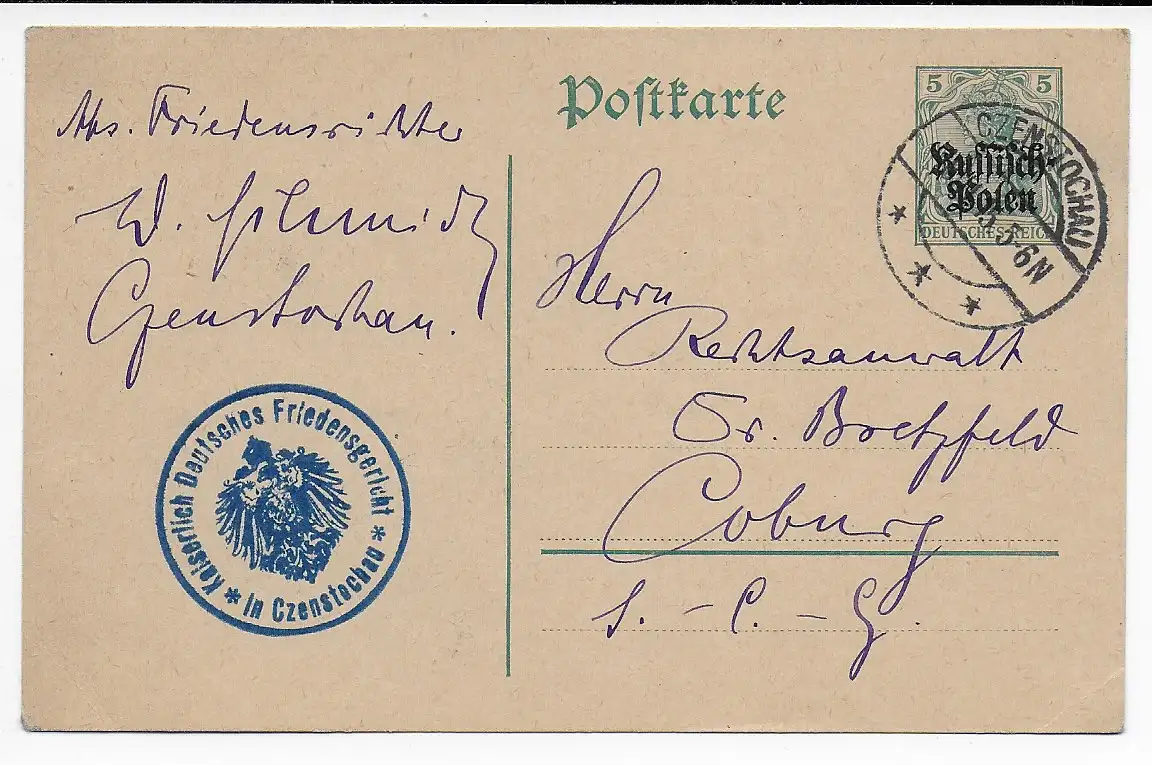 Postkarte
5 5
Russisch-
Polen
DEUTSCHES REICH
CZENSTOCHAU
5-6N
Abs. Friedensrichter
W. Schmidt
Czenstochau.
Kaiserlich Deutsches Friedensgericht * in Czenstochau *
Herrn
Rechtsanwalt
Dr. Bretzfeld
Coburg
S. - C. - G.